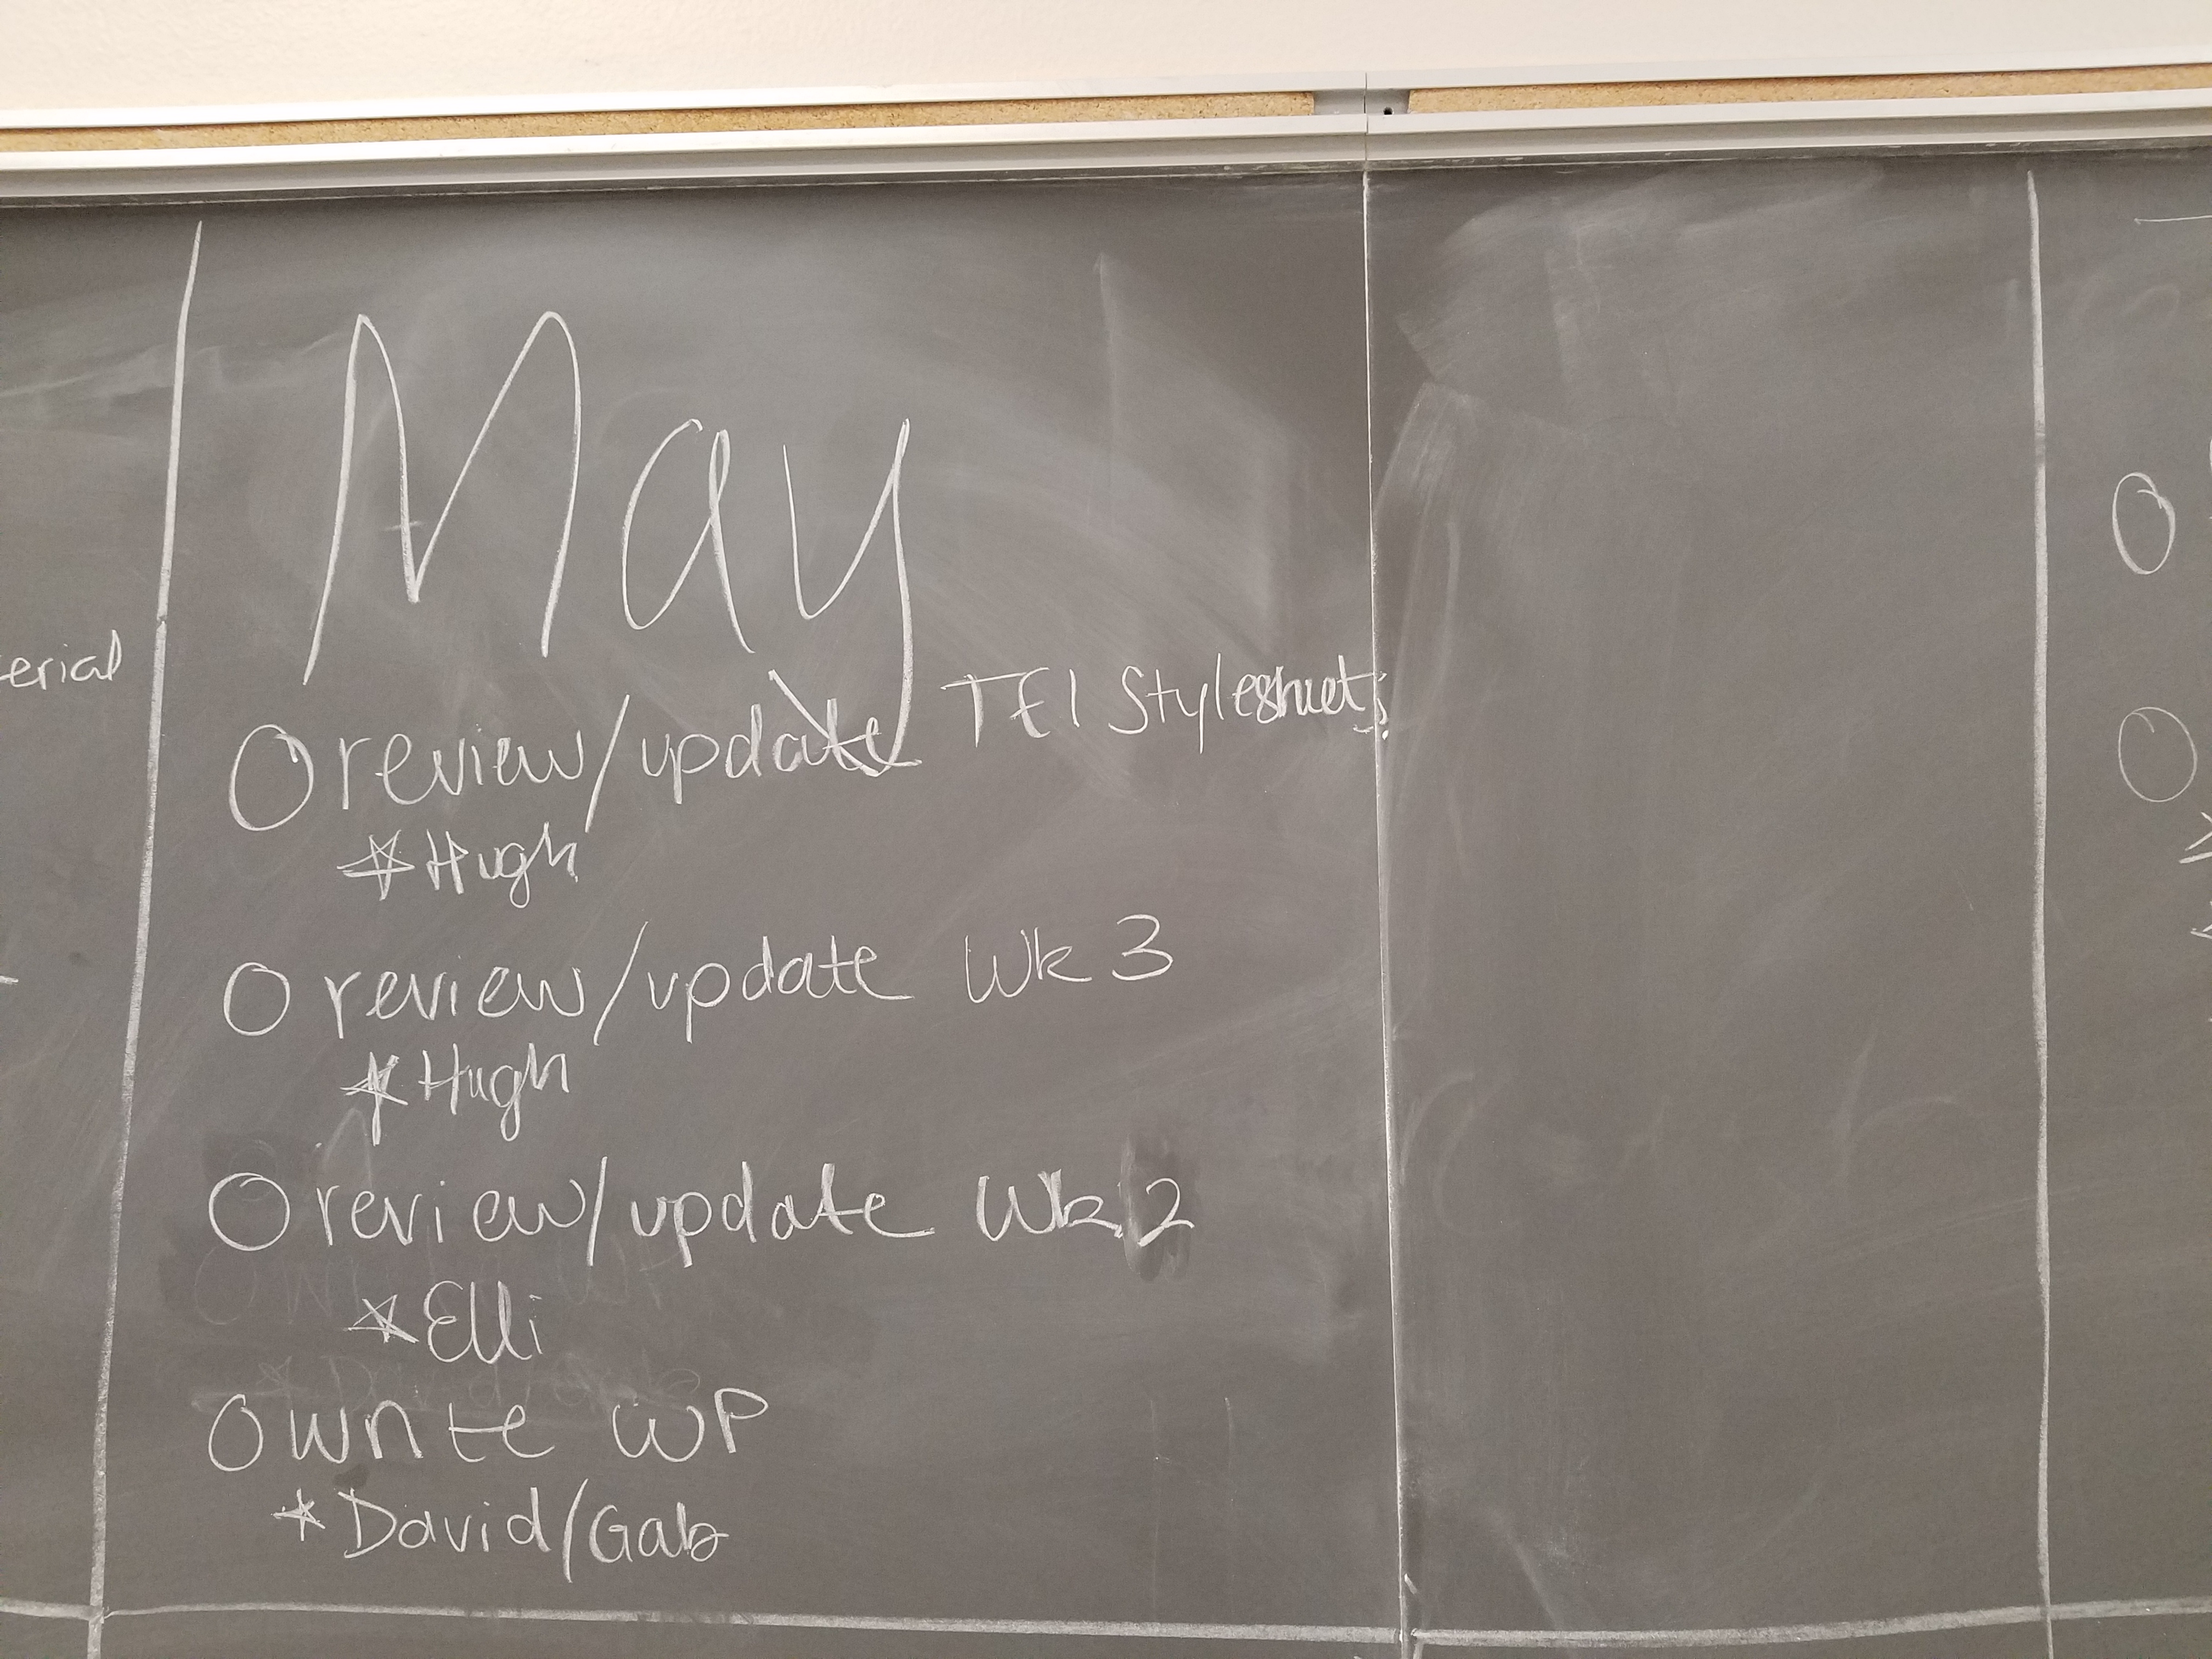 May
erial
O review/update TEI Stylesheets
* Hugh
O review/update Wk 3
* Hugh
O review/update Wk 2
* Elli
O write WP
* David/Gab